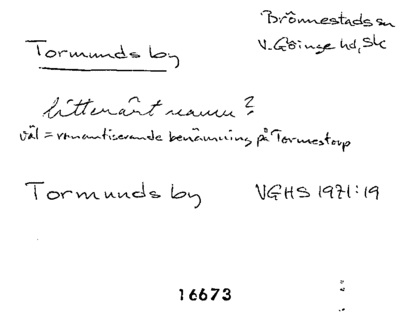 Brönnestads sn
V. Göinge hd, Sk
Tormunds by
litterärt namn?
väl = romantiserande benämning på Tormestorp
Tormunds by VGHS 1971:19
16673